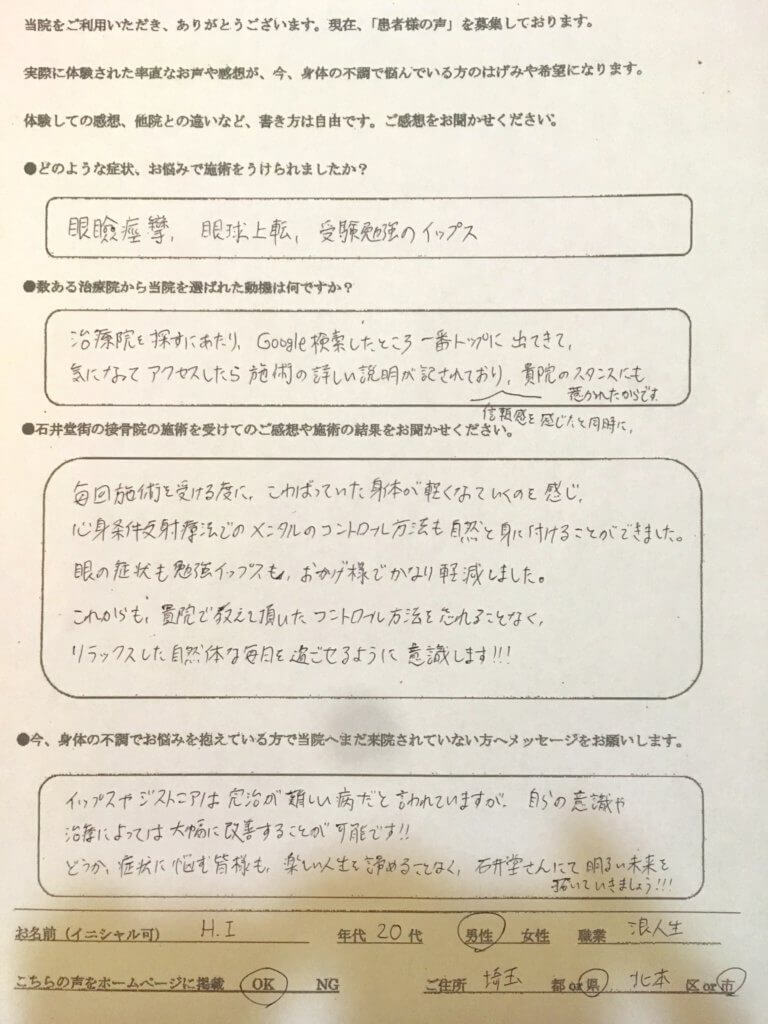 当院をご利用いただき、ありがとうございます。現在、「患者様の声」を募集しております。
実際に体験された率直なお声や感想が、今、身体の不調で悩んでいる方のはげみや希望になります。
体験しての感想、他院との違いなど、書き方は自由です。ご感想をお聞かせください。
●どのような症状、お悩みで施術をうけられましたか？
眼瞼痙攣, 眼球上転, 受験勉強のイップス
●数ある治療院から当院を選ばれた動機は何ですか？
治療院を探すにあたり, Google検索したところ 一番トップに 出てきて,
気になって アクセスしたら 施術の詳しい説明が記されており, 貴院のスタンスにも
惹かれたからです
信頼感を感じたと同時に,
●石井堂街の接骨院の施術を受けてのご感想や施術の結果をお聞かせください。
毎回施術を受ける度に, こわばっていた身体が軽くなっていくのを感じ,
心身条件反射療法でのメンタルのコントロール方法も自然と身に付けることができました。
眼の症状も勉強イップスも, おかげ様でかなり軽減しました。
これからも, 貴院で教えて頂いたコントロール方法を忘れることなく,
リラックスした自然体な毎日を過ごせるように意識します!!!
●今、身体の不調でお悩みを抱えている方で当院へまだ来院されていない方へメッセージをお願いします。
イップスやジストニアは完治が難しい病だと言われていますが, 自らの意識や
治療によっては大幅に改善することが可能です!!
どうか, 症状に悩む皆様も, 楽しい人生を諦めることなく, 石井堂さんにて 明るい未来を
拓いていきましょう!!!
お名前（イニシャル可） H.I 年代 20 代 男性 女性 職業 浪人生
こちらの声をホームページに掲載 OK NG ご住所 埼玉 都or県 北本 区or市